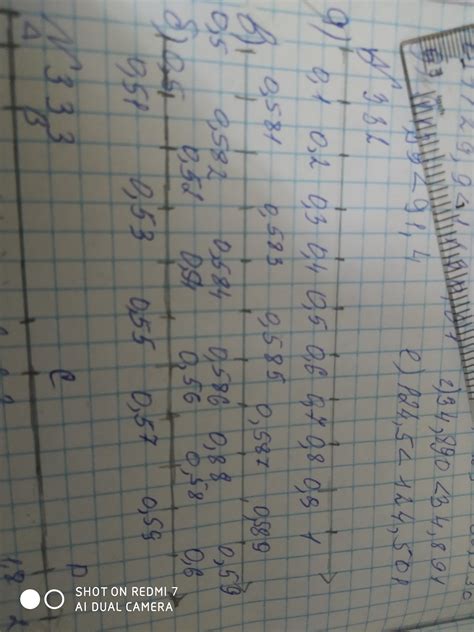 г) 34,890 < 34,891
е) 124,5 < 124,501
< 91,4
№ 332
а)
0,1 0,2 0,3 0,4 0,5 0,6 0,7 0,8 0,9 1
0,581 0,583 0,585 0,587 0,589
в)
0,5 0,582 0,584 0,586 0,88 0,59
б) 0,5 0,52 0,54 0,56 0,58 0,6
0,51 0,53 0,55 0,57 0,59
№ 333
A B C P
SHOT ON REDMI 7
AI DUAL CAMERA